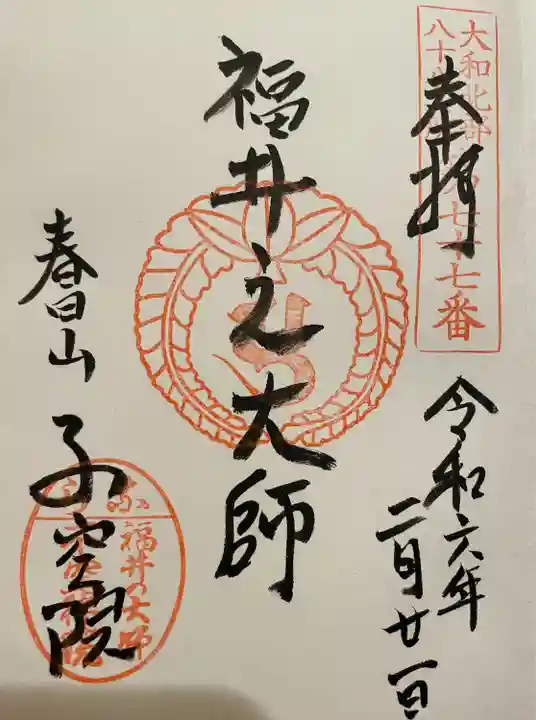 大和北部
八十八
七十七番
奉拝
令和六年
二月廿一日
福井之大師
春日山
不空院
福井の大師